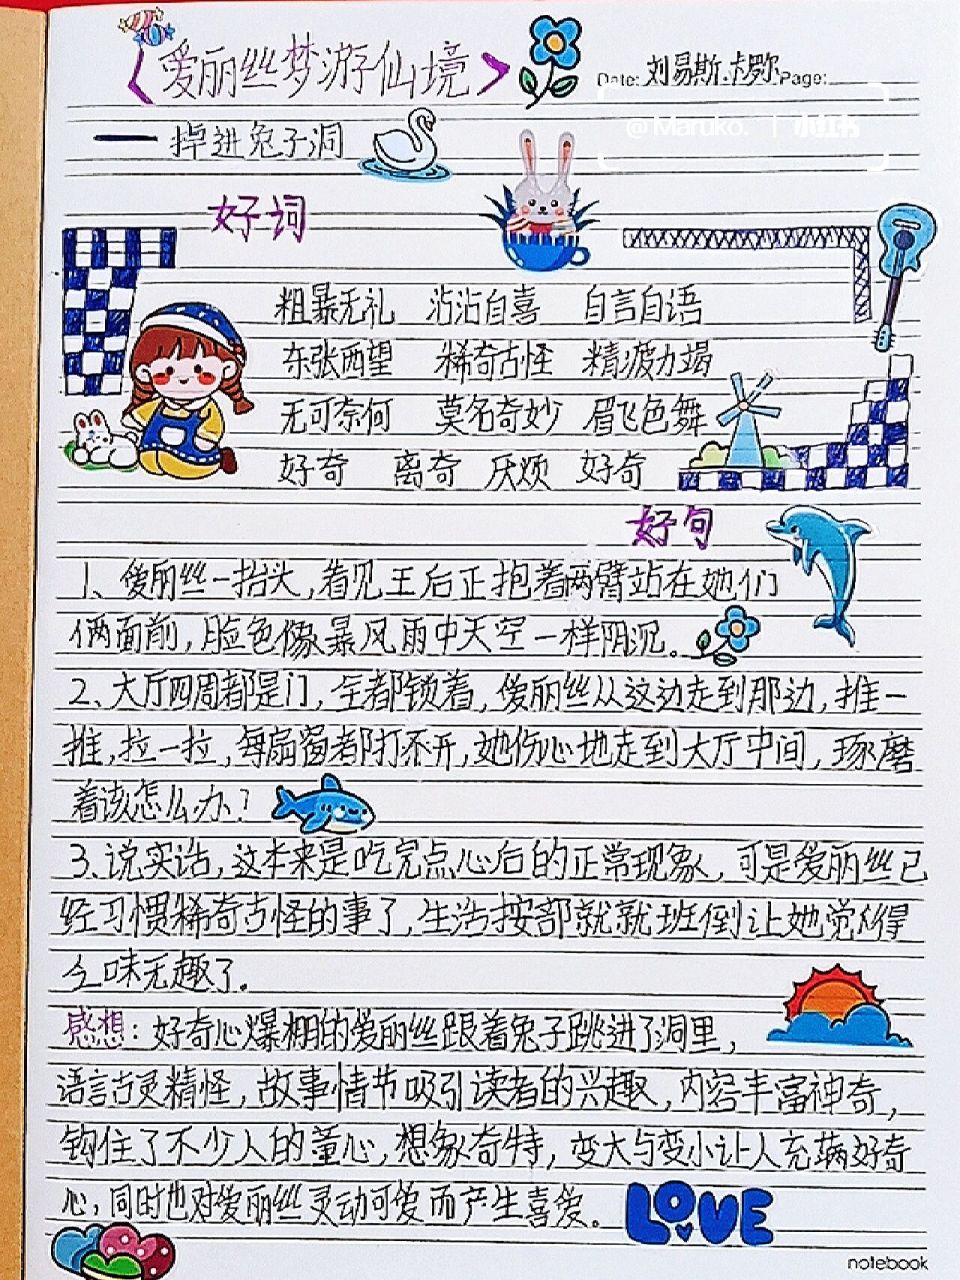 《爱丽丝梦游仙境》
Date: 刘易斯.卡罗尔 Page:
——掉进兔子洞
@Maruko. | 小红书
好词
粗暴无礼 沾沾自喜 自言自语
东张西望 稀奇古怪 精疲力竭
无可奈何 莫名奇妙 眉飞色舞
好奇 离奇 厌烦 好奇
好句
1、爱丽丝一抬头,看见王后正抱着两臂站在她们
俩面前,脸色像暴风雨中天空一样阴沉。
2、大厅四周都是门,全都锁着,爱丽丝从这边走到那边,推一
推,拉一拉,每扇窗都打不开,她伤心地走到大厅中间,琢磨
着该怎么办?
3、说实话,这本来是吃完点心后的正常现象,可是爱丽丝已
经习惯稀奇古怪的事了,生活按部就就班倒让她觉得
么味无趣了.
感想:好奇心爆棚的爱丽丝跟着兔子跳进了洞里,
语言古灵精怪,故事情节吸引读者的兴趣,内容丰富神奇,
钩住了不少人的童心,想象奇特,变大与变小让人充满好奇
心,同时也对爱丽丝灵动可爱而产生喜爱。
LOVE
notebook